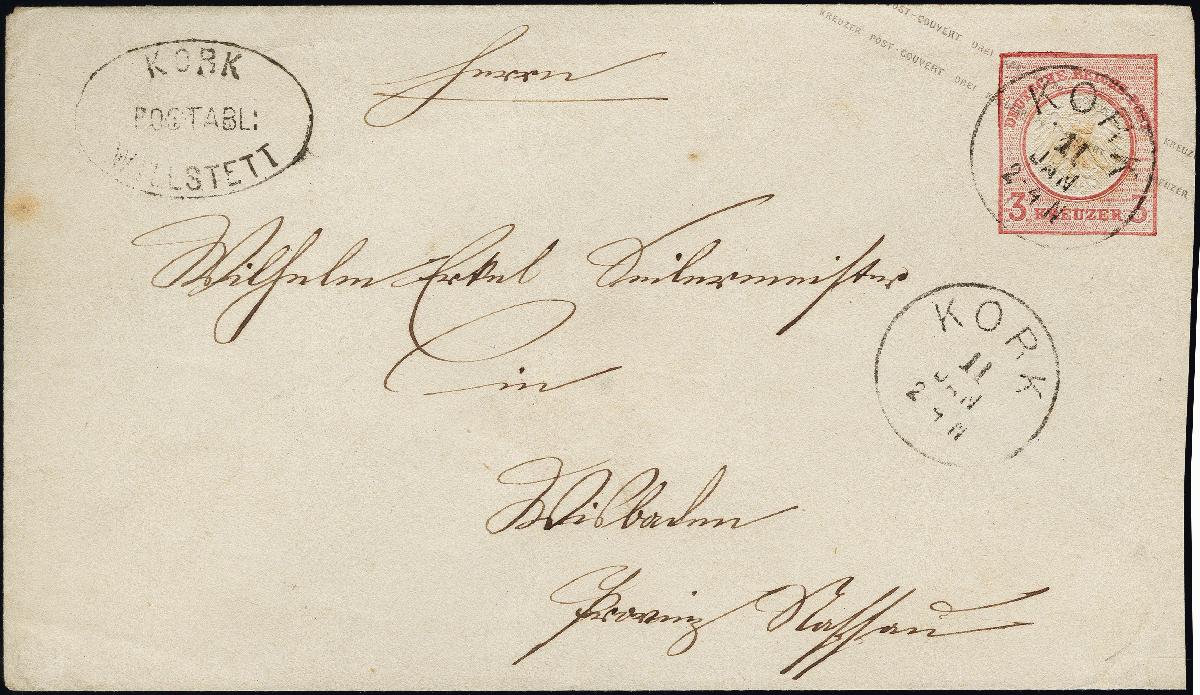 KREUZER POST-COUVERT DREI
POST-COUVERT DREI
KORK
POSTABL:
WILLSTETT
Herrn
DEUTSCHE REICHS-POST
3 KREUZER 3
KORK
11
JAN
2-4 N
Wilhelm Erkel Seilermeister
in
KORK
11
JAN
2 4 N
Wisbaden
Provinz Nassau